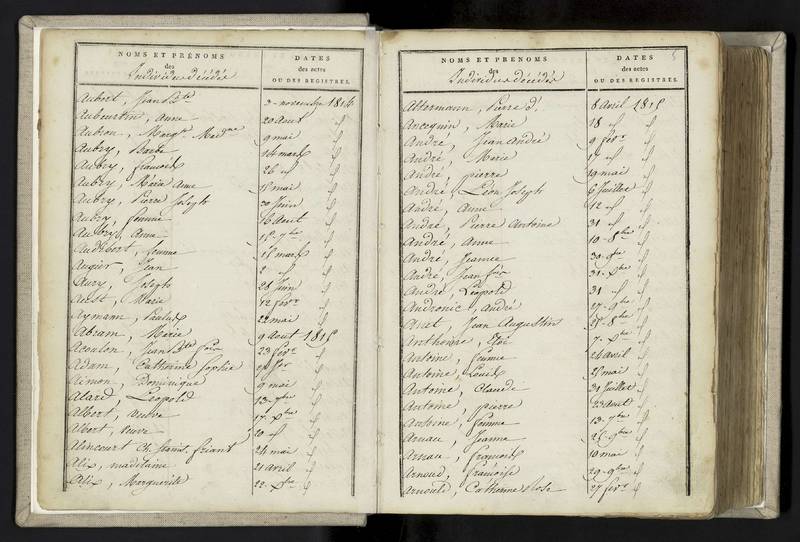 NOMS ET PRÉNOMS
des
Individus décédés
DATES
des actes
OU DES REGISTRES.
Aubert, Jean Bte 3 novembre 1816
Aubourtin, Anne 20 Aout
Aubry, Barbe 14 mars
Aubry, françois 26 "
Aubry, Maria Anne 18 mai
Aubry, Pierre Joseph 20 Juin
Aubry, femme 16 Aout
Aubry, Anne 15 7bre
Audibert, femme 15 mars
Augier, Jean 2 "
Aury, Joseph 28 Juin
Aerst, Marie 12 fevr
Aymann, Paulus 22 mai
Abram, Marie 9 Aout 1815
Acoulon, Jean Bte 23 fevr
Adam, Catherine Sophie
Aimon, Dominique 9 mai
Alard, Léopold 13 7bre
Albert, veuve 17 Xbre
Albert, veuve 10 "
Alincourt 24 mai
Alix, madelaine 21 avril
Alix, Marguerite 22 Xbre
NOMS ET PRENOMS
des
Individus décédés
DATES
des actes
OU DES REGISTRES.
5
Altermann, Pierre d. 8 avril 1815
Ancognin, Marie 18 "
André, Jean André 9 fevr
André, Marie 17 "
André, pierre 19 mai
André, Léon Joseph 6 Juillet
André, Anne 12 "
André, Pierre Antoine 31 "
André, Anne 10 8bre
André, Jeanne 30
André, Jean fois 31 Xbre
André, Léopold 31 "
Andronic, André 17 9bre
Anet, Jean Augustin 25 8bre
Anthoine, 7 Xbre
Antoine, femme 24 avril
Antoine, Louis 25 mai
Antoine, Claude 31 Juillet
Antoine, pierre 23 Aout
Antoine, femme 13 7bre
Arnau, Jeanne 25 9bre
Arnau, François 10 mai
Arnoud, Françoise 29 9bre
Arnould, Catherine Rose 27 fevr